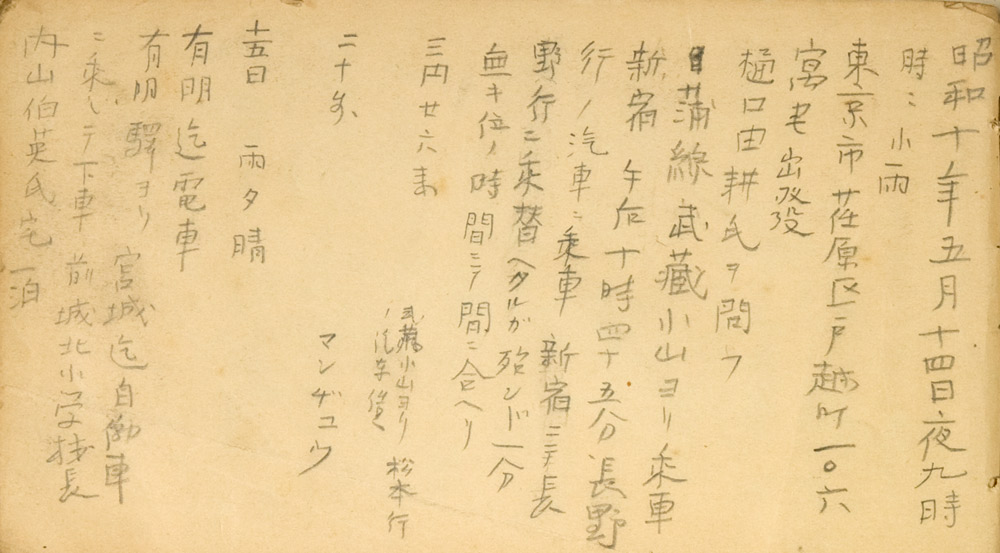 昭和十年五月十四日夜九時
時ニ小雨
東京市荏原区戸越町一〇六
寓宅出発
樋口由耕氏ヲ問フ
目蒲線武蔵小山ヨリ乗車
新宿 午后十時四十五分長野
行ノ汽車ニ乗車 新宿ニテ長
野行ニ乗替ヘタルガ殆ンド一分
無キ位ノ時間ニテ間ニ合ヘリ
三円廿六銭 武蔵小山ヨリ松本行
ノ汽車賃
二十銭 マンヂユウ
十五日 雨夕晴
有明迄電車
有明驛ヨリ 宮城迄自働車
ニ乗シテ下車 前城北小学校長
内山伯英氏宅一泊